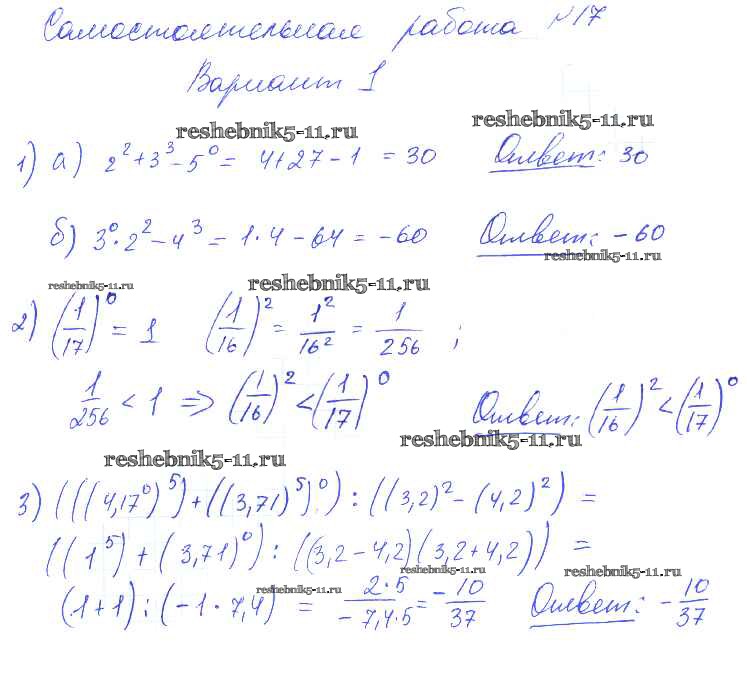 Самостоятельная работа №17
Вариант 1
reshebnik5-11.ru reshebnik5-11.ru
1) а) 2² + 3³ - 5⁰ = 4 + 27 - 1 = 30 Ответ: 30
б) 3⁰ · 2² - 4³ = 1 · 4 - 64 = -60 Ответ: -60
reshebnik5-11.ru
reshebnik5-11.ru reshebnik5-11.ru
2) (1/17)⁰ = 1 (1/16)² = 1²/16² = 1/256 ;
1/256 < 1 => (1/16)² < (1/17)⁰ Ответ: (1/16)² < (1/17)⁰
reshebnik5-11.ru
reshebnik5-11.ru
3) (((4,17⁰)⁵) + ((3,71)⁵)⁰) : ((3,2)² - (4,2)²) =
((1⁵) + (3,71)⁰) : ((3,2 - 4,2)(3,2 + 4,2)) =
reshebnik5-11.ru reshebnik5-11.ru
(1+1) : (-1 · 7,4) = 2·5/-7,4·5 = -10/37 Ответ: -10/37
reshebnik5-11.ru